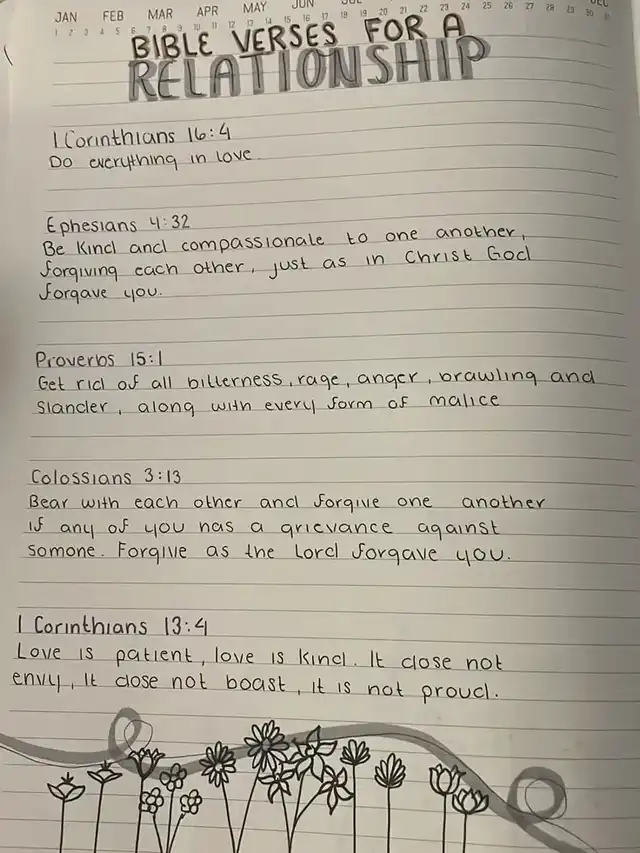 JAN FEB MAR APR MAY JUN JUL DEC
1 2 3 4 5 6 7 8 9 10 11 12 13 14 15 16 17 18 19 20 21 22 23 24 25 26 27 28 29 30 31
BIBLE VERSES FOR A
RELATIONSHIP
1 Corinthians 16:4
Do everything in love.
Ephesians 4:32
Be kind and compassionate to one another,
forgiving each other, just as in Christ God
forgave you.
Proverbs 15:1
Get rid of all bitterness, rage, anger, brawling and
Slander, along with every form of malice
Colossians 3:13
Bear with each other and forgive one another
if any of you has a grievance against
somone. Forgive as the Lord forgave you.
1 Corinthians 13:4
Love is patient, love is kind. It dose not
envy, It dose not boast, it is not proud.